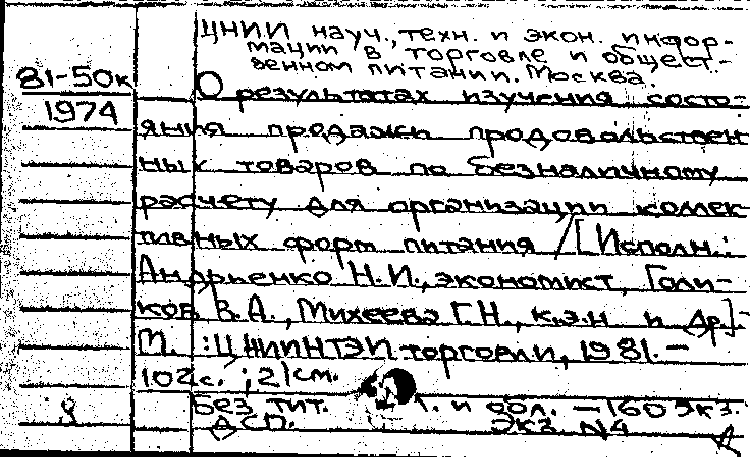 ЦНИИ науч., техн. и экон. инфор-
мации в торговле и общест-
венном питании. Москва.
81-50к
1974
О результатах изучения состо-
яния продажи продовольствен
ных товаров по безналичному
расчету для организации коллек
тивных форм питания / [Исполн.:
Андриенко Н.И., экономист, Голи-
ков В.А., Михеева Г.Н., к.э.н и др.]-
М. : ЦНИИТЭИ торговли, 1981. —
102с. ; 21см.
Без тит. л. и обл. — 160 экз.
ДСП. Экз. N4